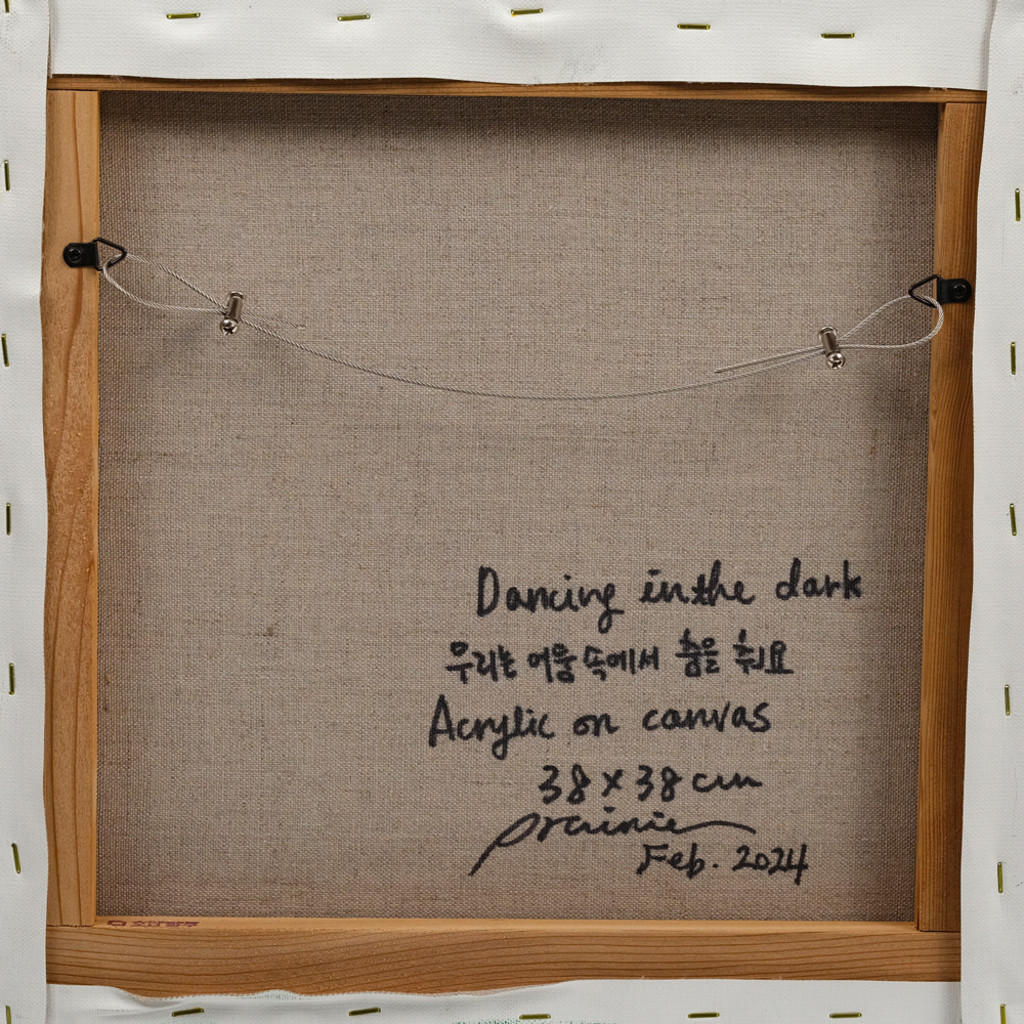 Dancing in the dark
우리는 어둠 속에서 춤을 춰요
Acrylic on canvas
38 x 38 cm
prairie
Feb. 2024